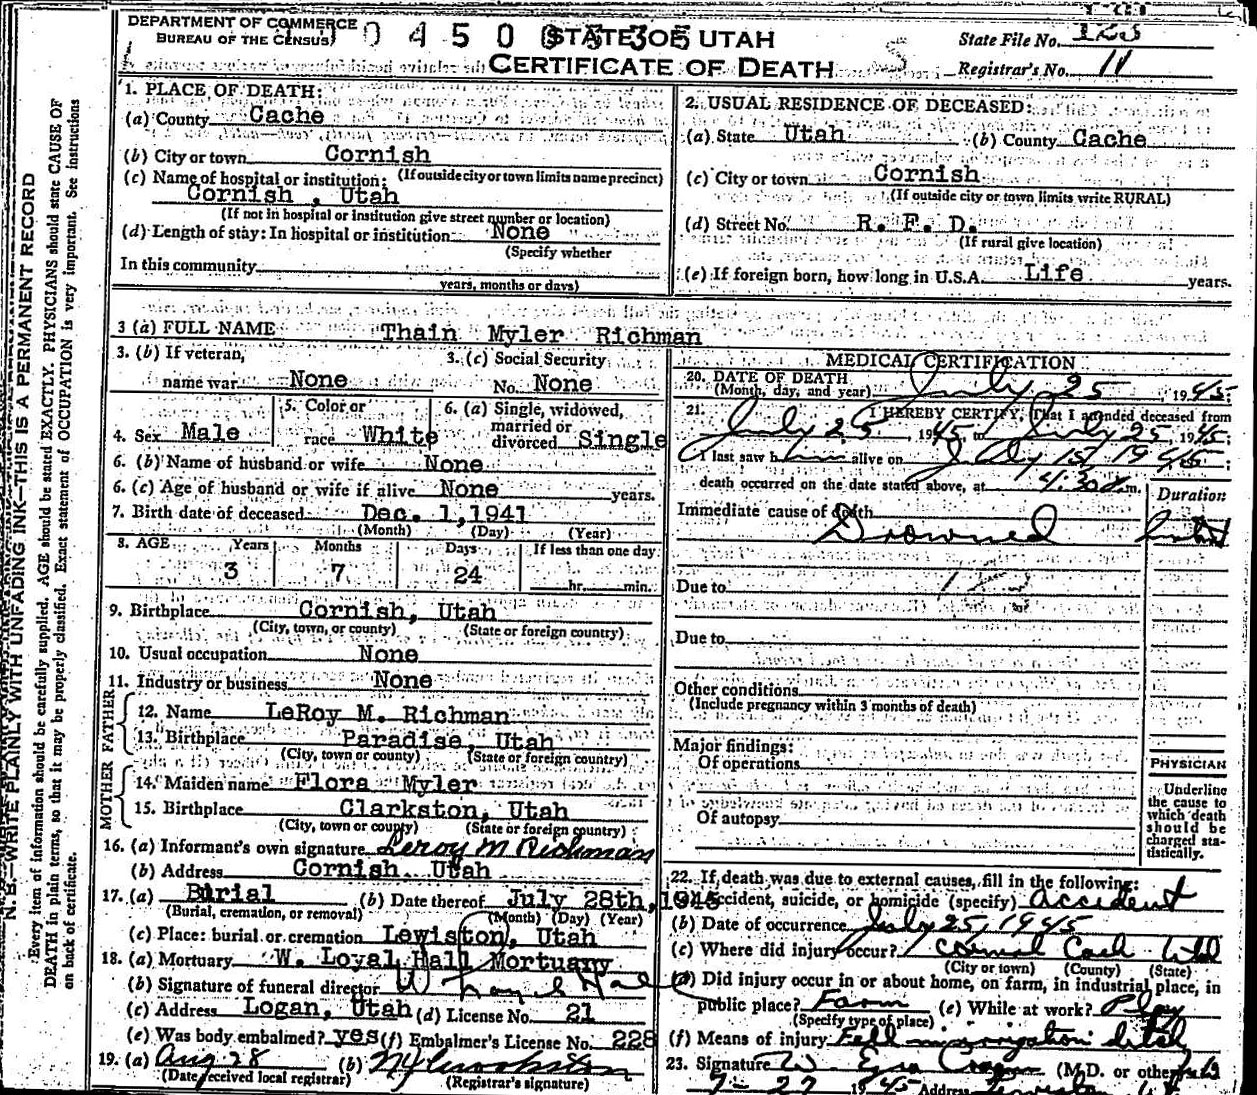 DEPARTMENT OF COMMERCE
BUREAU OF THE CENSUS
0 4 5 0 0 5 3 0 5
STATE OF UTAH
CERTIFICATE OF DEATH
State File No. 123
Registrar's No. 11
N. B.—WRITE PLAINLY WITH UNFADING INK—THIS IS A PERMANENT RECORD
Every item of information should be carefully supplied. AGE should be stated EXACTLY. PHYSICIANS should state CAUSE OF
DEATH in plain terms, so that it may be properly classified. Exact statement of OCCUPATION is very important. See instructions
on back of certificate.
1. PLACE OF DEATH:
(a) County Cache
(b) City or town Cornish
(If outside city or town limits name precinct)
(c) Name of hospital or institution:
Cornish , Utah
(If not in hospital or institution give street number or location)
(d) Length of stay: In hospital or institution None
(Specify whether
In this community
years, months or days)
2. USUAL RESIDENCE OF DECEASED:
(a) State Utah (b) County Cache
(c) City or town Cornish
(If outside city or town limits write RURAL)
(d) Street No. R. F. D.
(If rural give location)
(e) If foreign born, how long in U.S.A. Life years.
3 (a) FULL NAME Thain Myler Richman
3. (b) If veteran, name war None
3. (c) Social Security No. None
4. Sex Male
5. Color or race White
6. (a) Single, widowed, married or divorced Single
6. (b) Name of husband or wife None
6. (c) Age of husband or wife if alive None years.
7. Birth date of deceased Dec. 1,1941
(Month) (Day) (Year)
8. AGE Years Months Days If less than one day
3 7 24 hr. min.
9. Birthplace Cornish, Utah
(City, town, or county) (State or foreign country)
10. Usual occupation None
11. Industry or business None
FATHER
12. Name LeRoy M. Richman
13. Birthplace Paradise, Utah
(City, town or county) (State or foreign country)
MOTHER
14. Maiden name Flora Myler
15. Birthplace Clarkston, Utah
(City, town or county) (State or foreign country)
16. (a) Informant's own signature Leroy M Richman
(b) Address Cornish Utah
17. (a) Burial (b) Date thereof July 28th, 1945
(Burial, cremation, or removal) (Month) (Day) (Year)
(c) Place: burial or cremation Lewiston, Utah
18. (a) Mortuary W. Loyal Hall Mortuary
(b) Signature of funeral director W Loyal Hall
(c) Address Logan, Utah (d) License No. 21
(e) Was body embalmed? yes (f) Embalmer's License No. 228
19. (a) Aug 28 (b)
(Date received local registrar) (Registrar's signature)
MEDICAL CERTIFICATION
20. DATE OF DEATH July 25, 1945
(Month, day, and year)
21. I HEREBY CERTIFY, That I attended deceased from
July 25, 1945 to July 25, 1945;
I last saw him alive on July 15, 1945;
death occurred on the date stated above, at 4:30 m.
Duration
Immediate cause of death
Drowned
Due to
Due to
Other conditions
(Include pregnancy within 3 months of death)
Major findings:
Of operations
Of autopsy
PHYSICIAN
Underline
the cause to
which death
should be
charged sta-
tistically.
22. If death was due to external causes, fill in the following:
Accident, suicide, or homicide (specify) accident
(b) Date of occurrence July 25, 1945
(c) Where did injury occur?
(City or town) (County) (State)
(d) Did injury occur in or about home, on farm, in industrial place, in
public place? Farm (e) While at work? Play
(Specify type of place)
(f) Means of injury Fell in irrigation ditch
23. Signature W. Ezra (M.D. or other)
7-27 1945 Address Lewiston